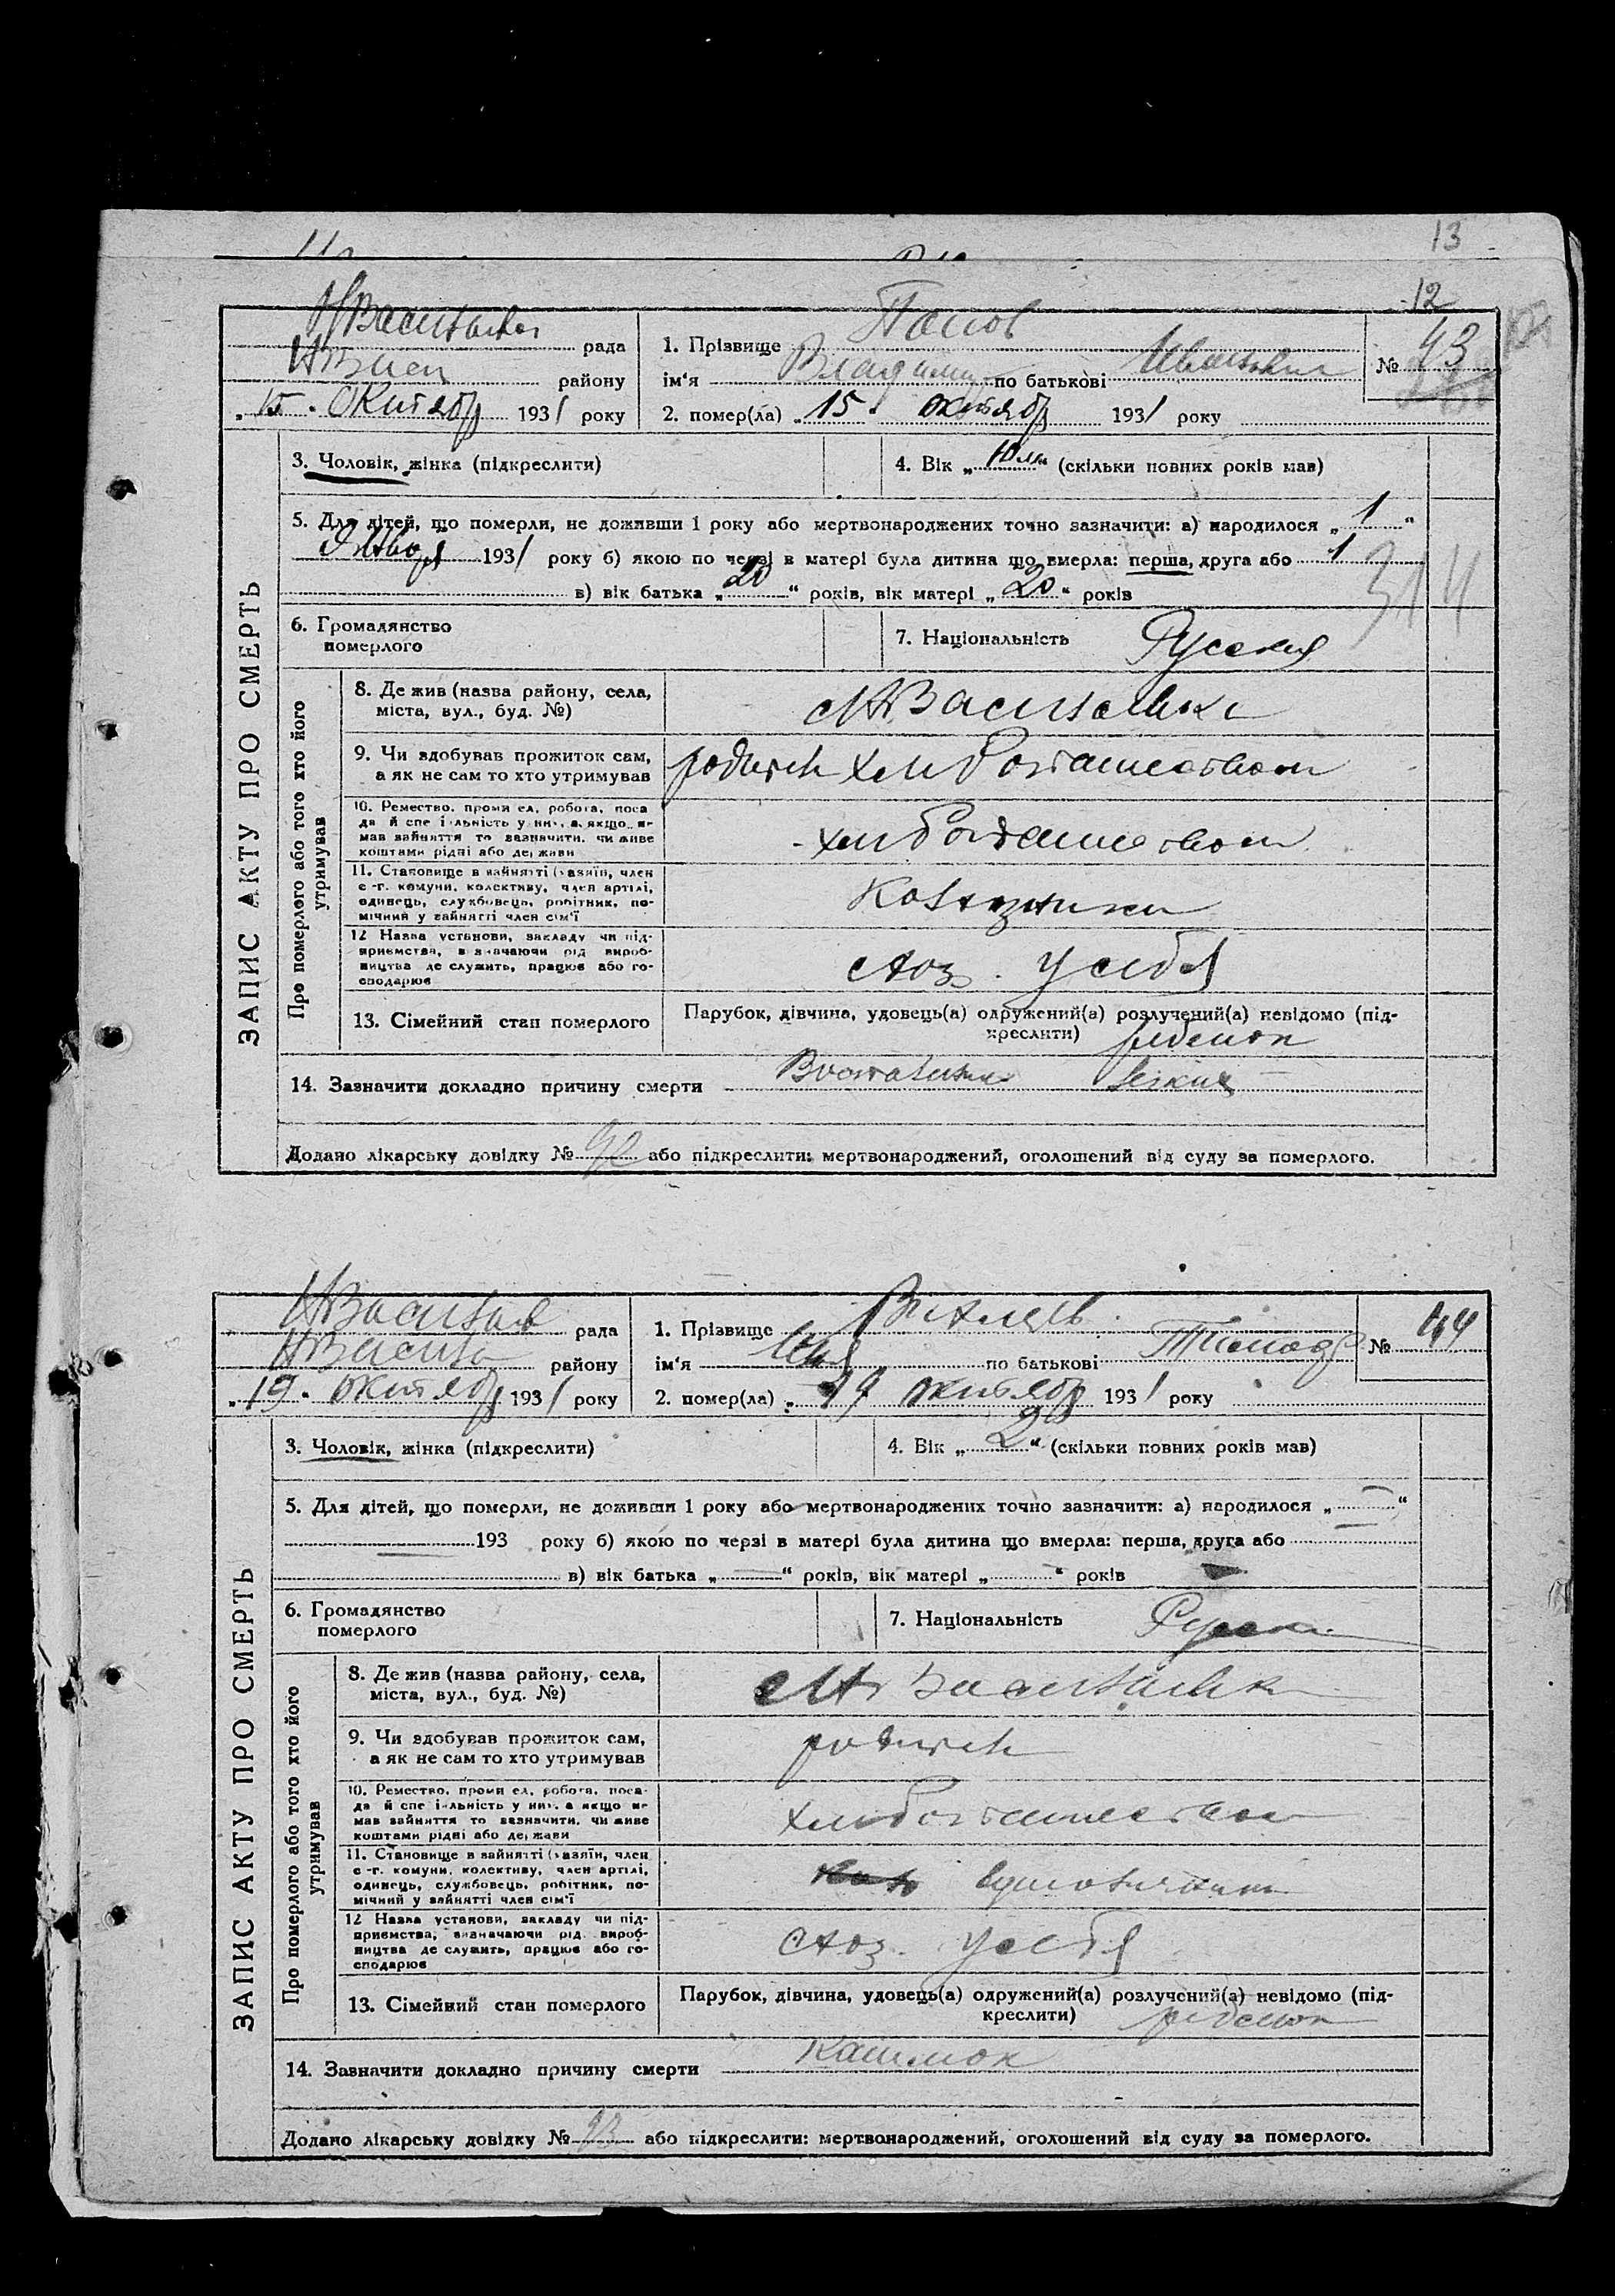 13
12
рада 1. Прізвище Попов
№ 43
району ім‘я Владимир по батькові Иванович
„15“ Октября 1931 року 2. помер(ла) „15“ октября 1931 року
ЗАПИС АКТУ ПРО СМЕРТЬ
3. Чоловік, жінка (підкреслити) 4. Вік „10 м“ (скільки повних років мав)
5. Для дітей, що померли, не доживши 1 року або мертвонароджених точно зазначити: а) народилося „1“
Января 1931 року б) якою по черзі в матері була дитина що вмерла: перша, друга або 1
в) вік батька „20“ років, вік матері „20“ років
314
6. Громадянство померлого 7. Національність Русский
Про померлого або того хто його утримував
8. Де жив (назва району, села,
міста, вул., буд. №)
9. Чи здобував прожиток сам,
а як не сам то хто утримував
хлебопашеством
10. Ремество, промисел, робота, поса
да й спеціяльність у них, а якщо не
мав зайняття то зазначити, чи живе
коштами рідні або держави
хлебопашеством
11. Становище в зайнятті (хазяїн, член
с.-г. комуни, колективу, член артілі,
одинець, службовець, робітник, по-
мічний у зайнятті член сім'ї
12 Назва установи, закладу чи під-
приємства, визначаючи рід вироб-
ництва де служить, працює або го-
сподарює
13. Сімейний стан померлого Парубок, дівчина, удовець(а) одружений(а) розлучений(а) невідомо (під-
креслити) ребенок
14. Зазначити докладно причину смерти Воспаление легких
Додано лікарську довідку № 92 або підкреслити: мертвонароджений, оголошений від суду за померлого.
рада 1. Прізвище
№ 44
району ім‘я Илья по батькові
„19“ октября 1931 року 2. помер(ла) „19 октября 1931 року
ЗАПИС АКТУ ПРО СМЕРТЬ
3. Чоловік, жінка (підкреслити) 4. Вік „2“ (скільки повних років мав)
5. Для дітей, що померли, не доживши 1 року або мертвонароджених точно зазначити: а) народилося „—“
— 193 року б) якою по черзі в матері була дитина що вмерла: перша, друга або
в) вік батька „—“ років, вік матері „“ років
6. Громадянство померлого 7. Національність
Про померлого або того хто його утримував
8. Де жив (назва району, села,
міста, вул., буд. №)
9. Чи здобував прожиток сам,
а як не сам то хто утримував
10. Ремество, промисел, робота, поса-
да й спеціяльність у них, а якщо не
мав зайняття то зазначити, чи живе
коштами рідні або держави
хлебопашеством
11. Становище в зайнятті (хазяїн, член
с.-г. комуни, колективу, член артілі,
одинець, службовець, робітник, по-
мічний у зайнятті член сім'ї
12 Назва установи, закладу чи під-
приємства, визначаючи рід вироб-
ництва де служить, працює або го-
сподарює
13. Сімейний стан померлого Парубок, дівчина, удовець(а) одружений(а) розлучений(а) невідомо (під-
креслити) ребенок
14. Зазначити докладно причину смерти
Додано лікарську довідку № 93 або підкреслити: мертвонароджений, оголошений від суду за померлого.